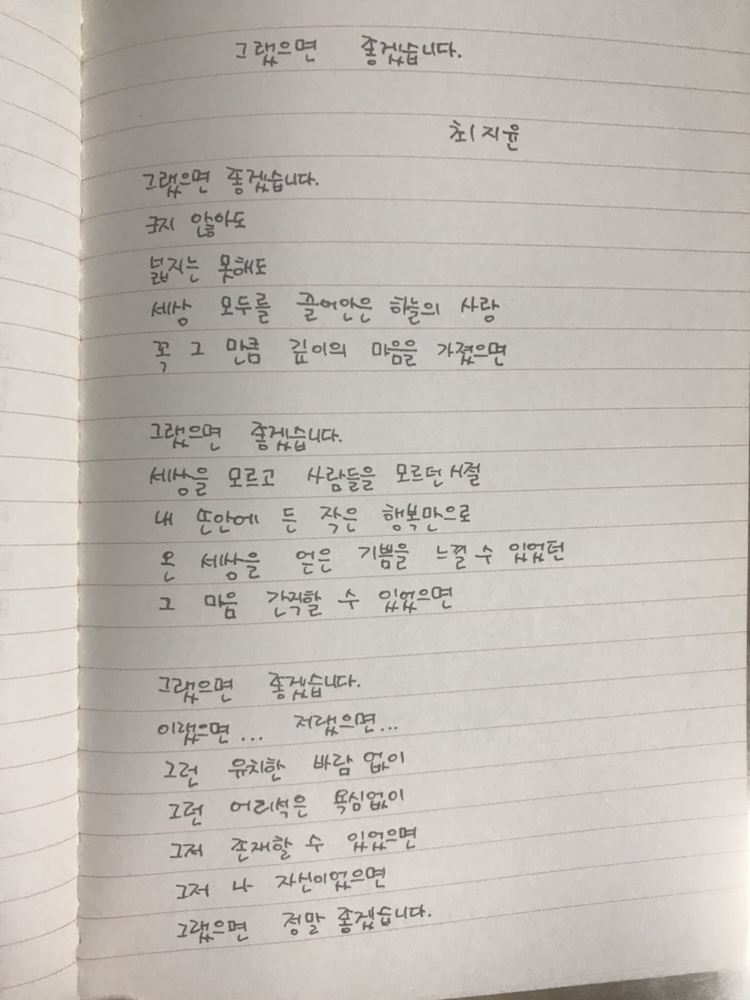 그랬으면 좋겠습니다.
최지윤
그랬으면 좋겠습니다.
크지 않아도
넓지는 못해도
세상 모두를 끌어안은 하늘의 사랑
꼭 그 만큼 깊이의 마음을 가졌으면
그랬으면 좋겠습니다.
세상을 모르고 사람들을 모르던 시절
내 손안에 든 작은 행복만으로
온 세상을 얻은 기쁨을 느낄 수 있었던
그 마음 간직할 수 있었으면
그랬으면 좋겠습니다.
이랬으면... 저랬으면...
그런 유치한 바람 없이
그런 어리석은 욕심없이
그저 존재할 수 있었으면
그저 나 자신이었으면
그랬으면 정말 좋겠습니다.